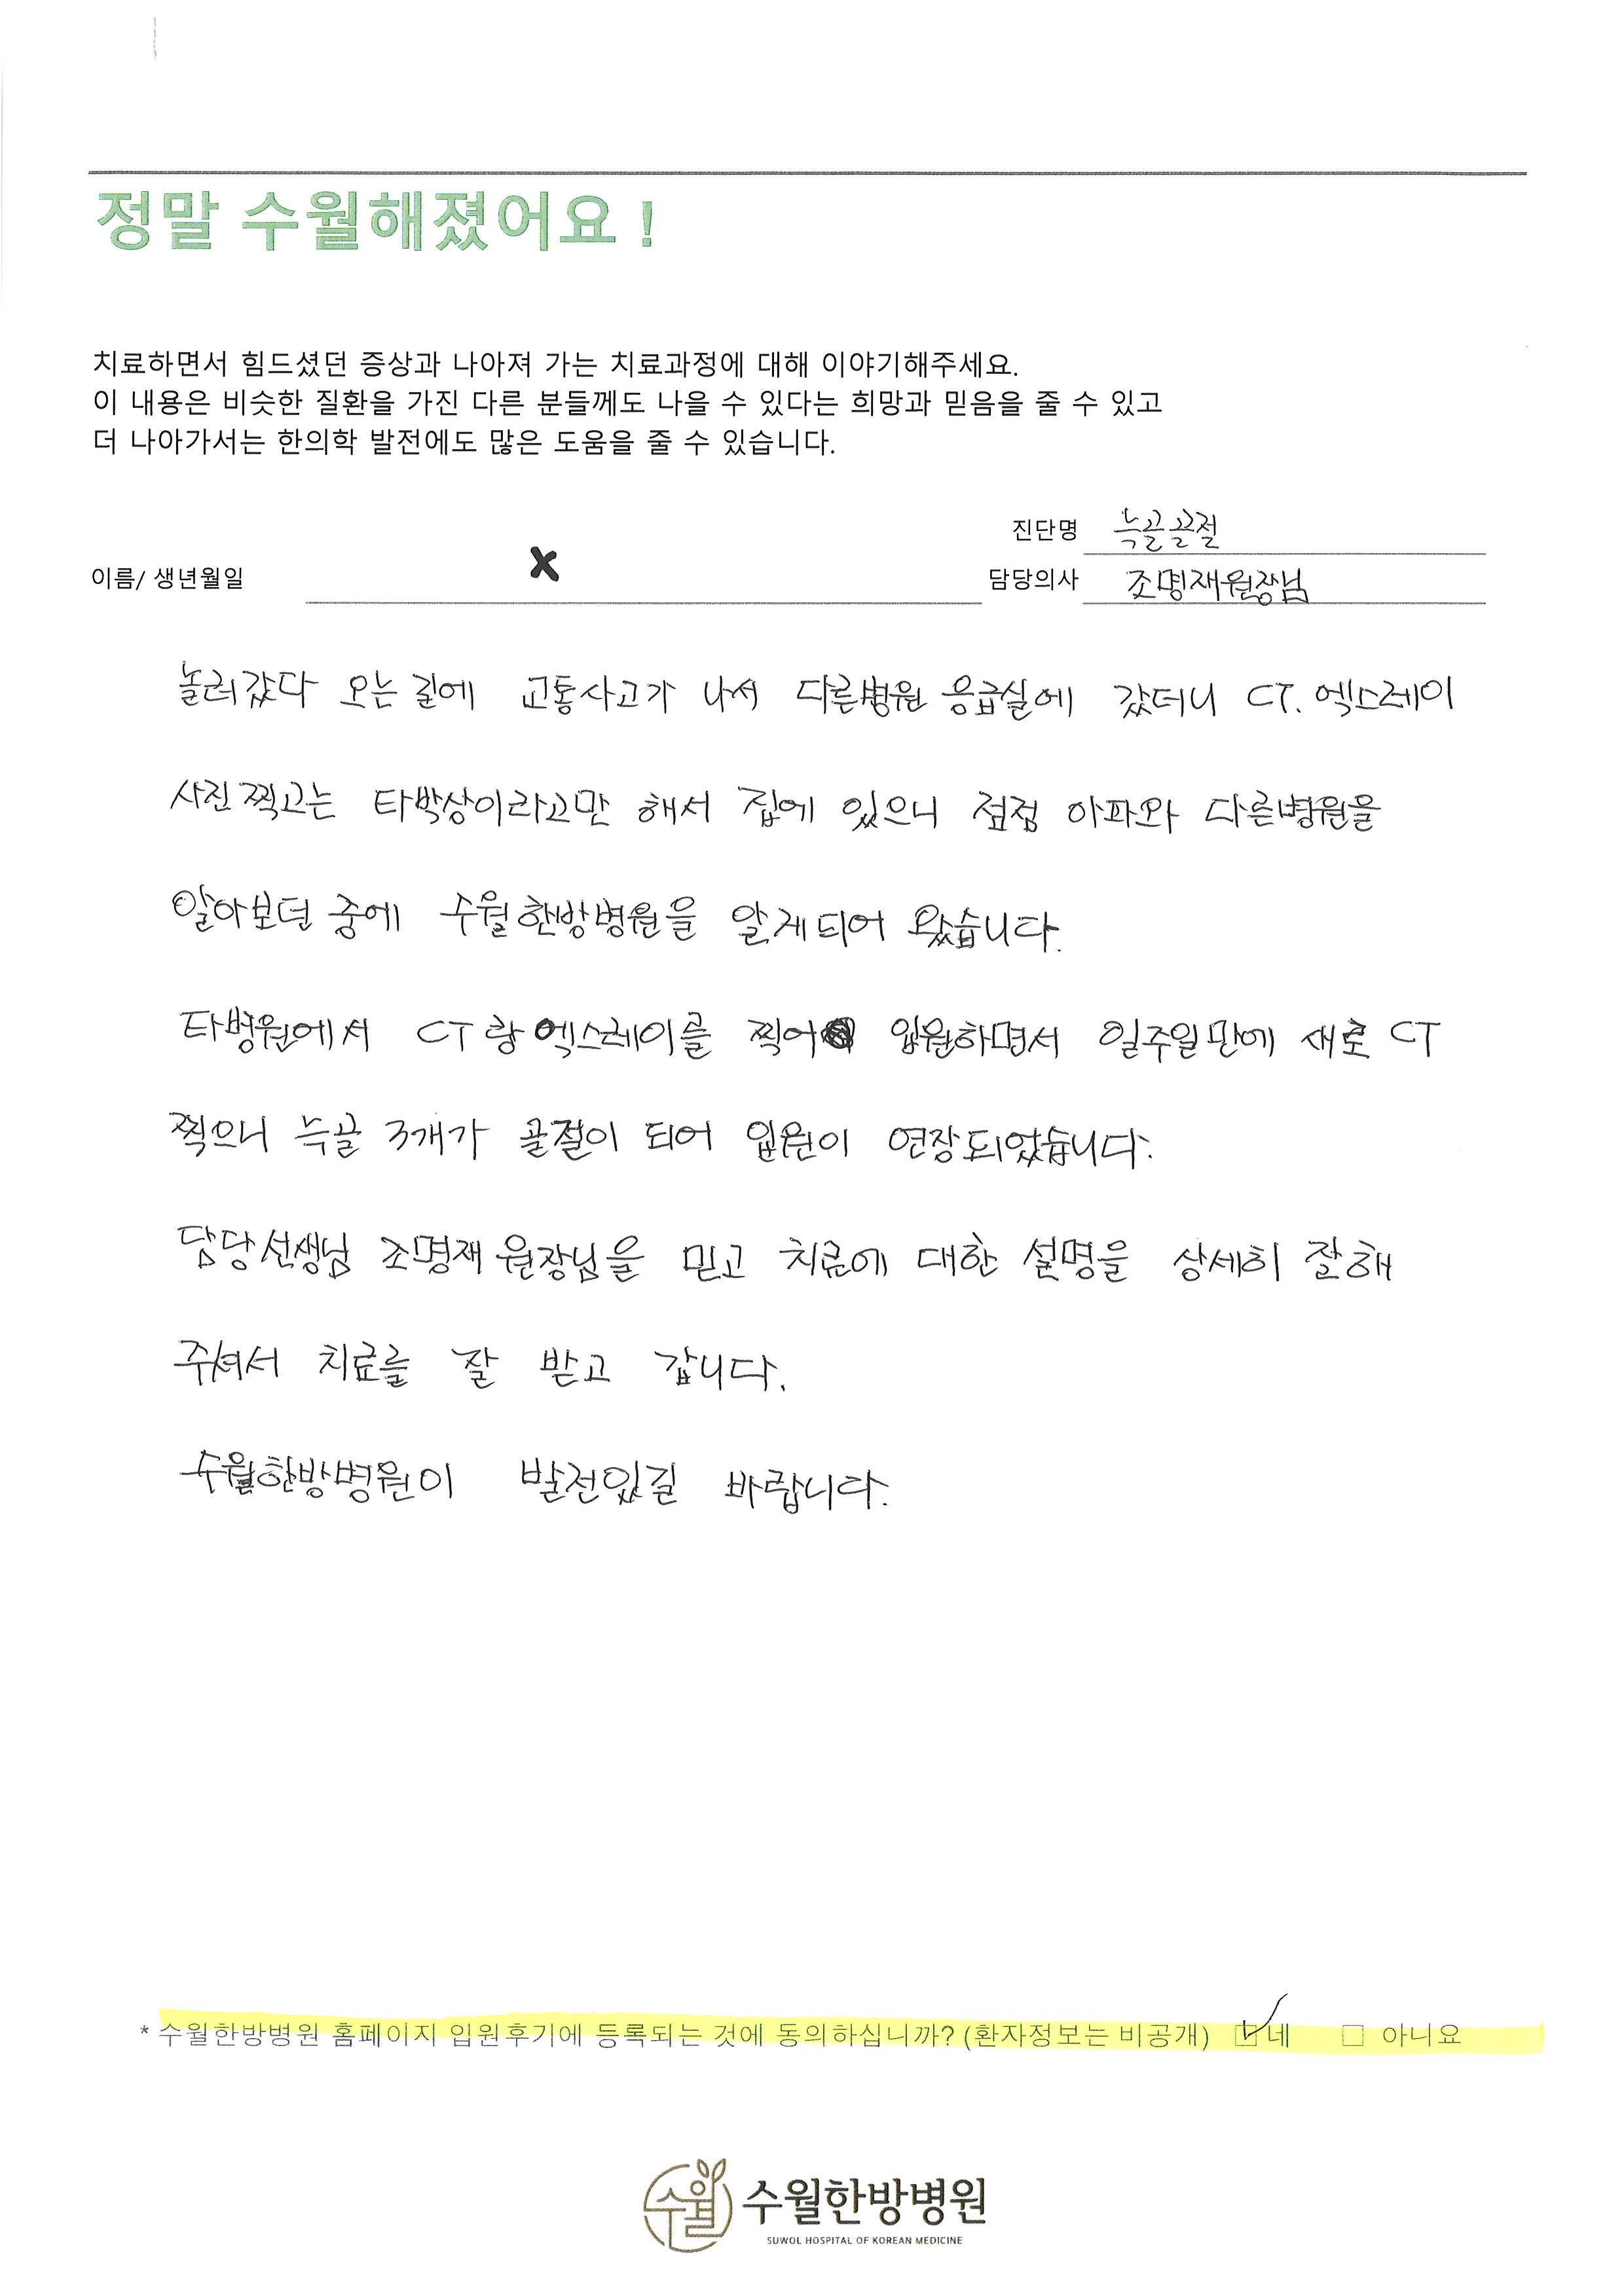 정말 수월해졌어요 !
치료하면서 힘드셨던 증상과 나아져 가는 치료과정에 대해 이야기해주세요.
이 내용은 비슷한 질환을 가진 다른 분들께도 나을 수 있다는 희망과 믿음을 줄 수 있고
더 나아가서는 한의학 발전에도 많은 도움을 줄 수 있습니다.
진단명 늑골골절
이름/ 생년월일 x 담당의사 조명재원장님
놀러갔다 오는 길에 교통사고가 나서 다른병원 응급실에 갔더니 CT. 엑스레이
사진 찍고는 타박상이라고만 해서 집에 있으니 점점 아파와 다른병원을
알아보던 중에 수월한방병원을 알게되어 왔습니다.
타병원에서 CT랑 엑스레이를 찍어 입원하면서 일주일만에 새로 CT
찍으니 늑골 3개가 골절이 되어 입원이 연장되었습니다.
담당선생님 조명재 원장님을 믿고 치료에 대한 설명을 상세히 잘해
주셔서 치료를 잘 받고 갑니다.
수월한방병원이 발전있길 바랍니다.
* 수월한방병원 홈페이지 입원후기에 등록되는 것에 동의하십니까? (환자정보는 비공개) ☑네 □ 아니요
수월 수월한방병원
SUWOL HOSPITAL OF KOREAN MEDICINE